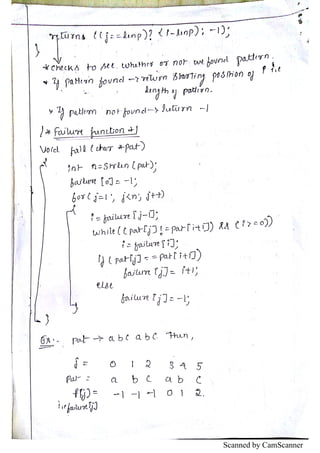 return ((j==lenp)? i-lenp : -1);
}
* checks to see whether or not we found pattern.
* If pattern found → return starting position of P i.e
length of pattern.
* If pattern not found → return -1
/* Failure function */
void fail (char *pat)
{
int n=strlen(pat);
failure[0]=-1;
for(j=1; j<n; j++)
{
i=failure[j-1];
while((pat[j]!=pat[i+1]) && (i>=0))
i=failure[i];
if(pat[j]==pat[i+1])
failure[j]=i+1;
else
failure[j]=-1;
}
}
Ex:- pat → abcabc Then,
j = 0 1 2 3 4 5
Pat = a b c a b c
f(j)= -1 -1 -1 0 1 2.
i.e failure[j]
Scanned by CamScanner